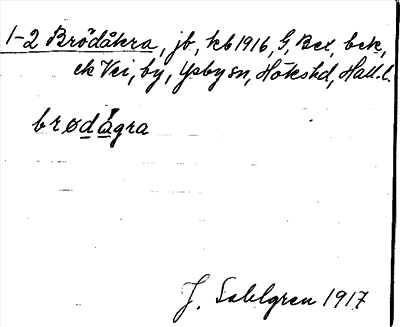 1-2 Brödåkra, jb, kb 1916, G, Bex, bek,
ek Vei, by, Ysby sn, Höks hd, Hall. l.
brødågra
J. Sahlgren 1917